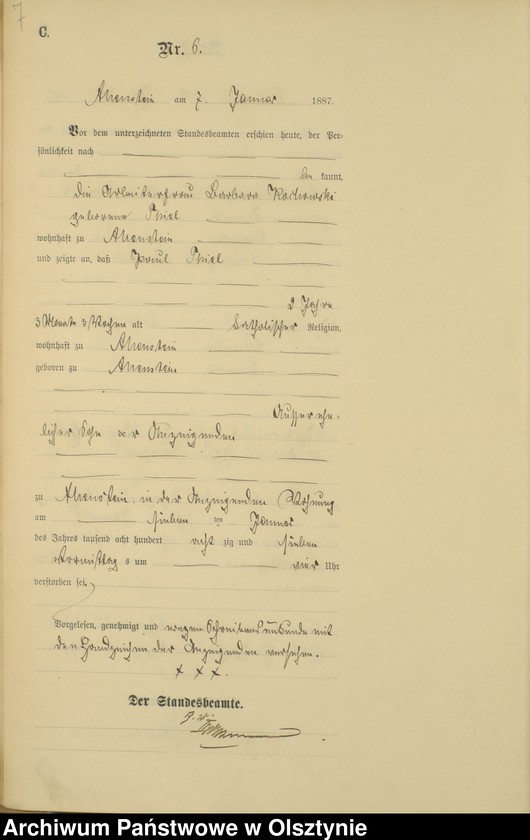 7
C.
Nr. 6.
Allenstein am 7. Januar 1887.
Vor dem unterzeichneten Standesbeamten erschien heute, der Per-
sönlichkeit nach
be kannt,
die Arbeiterfrau Barbara Kochowski
geborene Thiel
wohnhaft zu Allenstein
und zeigte an, daß Paul Thiel
2 Jahre
3 Monate 3 Wochen alt katholischer Religion,
wohnhaft zu Allenstein
geboren zu Allenstein
Außerehe-
licher Sohn der Anzeigenden
zu Allenstein, in der Anzeigenden Wohnung
am sieben ten Januar
des Jahres tausend acht hundert acht zig und sieben
Vormittag s um vier Uhr
verstorben sei.
Vorgelesen, genehmigt und wegen Schreibensunkunde mit
den Handzeichen der Anzeigenden versehen.
+ + +.
Der Standesbeamte.
Archiwum Państwowe w Olsztynie